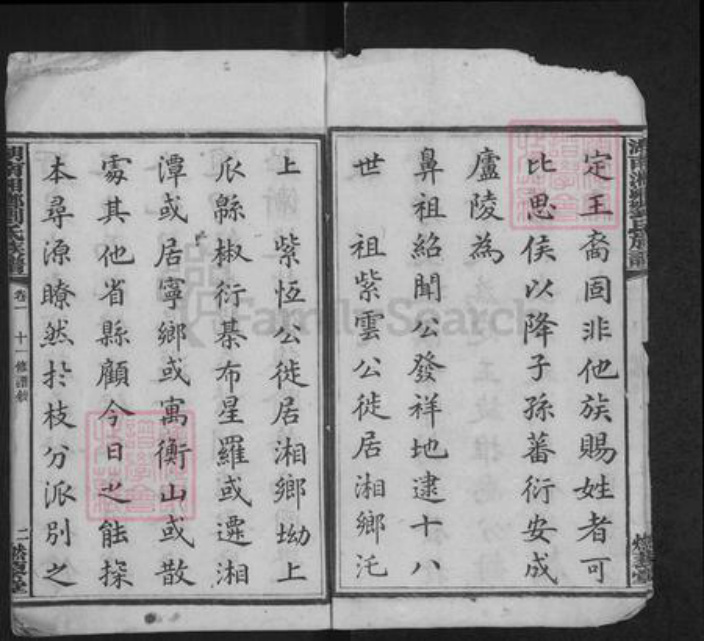 定王裔固非他族賜姓者可
比思侯以降子孫蕃衍安成
廬陵為
鼻祖紹聞公發祥地逮十八
世 祖紫雲公徙居湘鄉汑
上 紫恆公徙居湘鄉坳上
瓜緜椒衍棊布星羅或遷湘
潭或居寧鄉或寓衡山或散
處其他省縣顧今日之能探
本尋源瞭然於枝分派別之
湖南湘鄉劉氏族譜
卷一
十一修譜敘
二
FamilySearch